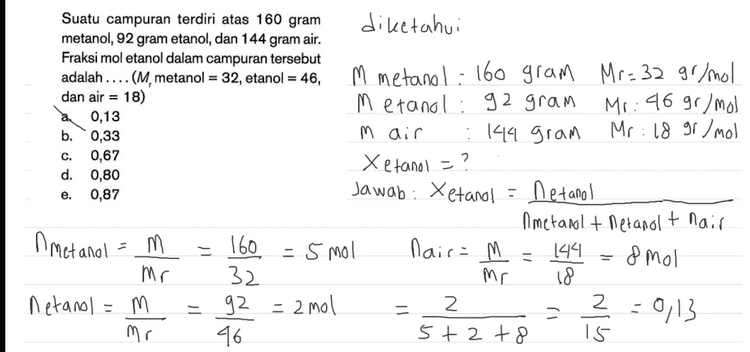 Suatu campuran terdiri atas 160 gram
metanol, 92 gram etanol, dan 144 gram air.
Fraksi mol etanol dalam campuran tersebut
adalah .... (Mr metanol = 32, etanol = 46,
dan air = 18)
a. 0,13
b. 0,33
c. 0,67
d. 0,80
e. 0,87
diketahui
M metanol = 160 gram Mr = 32 gr/mol
M etanol : 92 gram Mr : 46 gr/mol
m air : 144 gram Mr : 18 gr/mol
X etanol = ?
Jawab : X etanol = n etanol
n metanol + n etanol + n air
n metanol = M = 160 = 5 mol
Mr 32
n air = M = 144 = 8 mol
Mr 18
n etanol = M = 92 = 2 mol
Mr 46
= 2 = 2 = 0,13
5 + 2 + 8 15